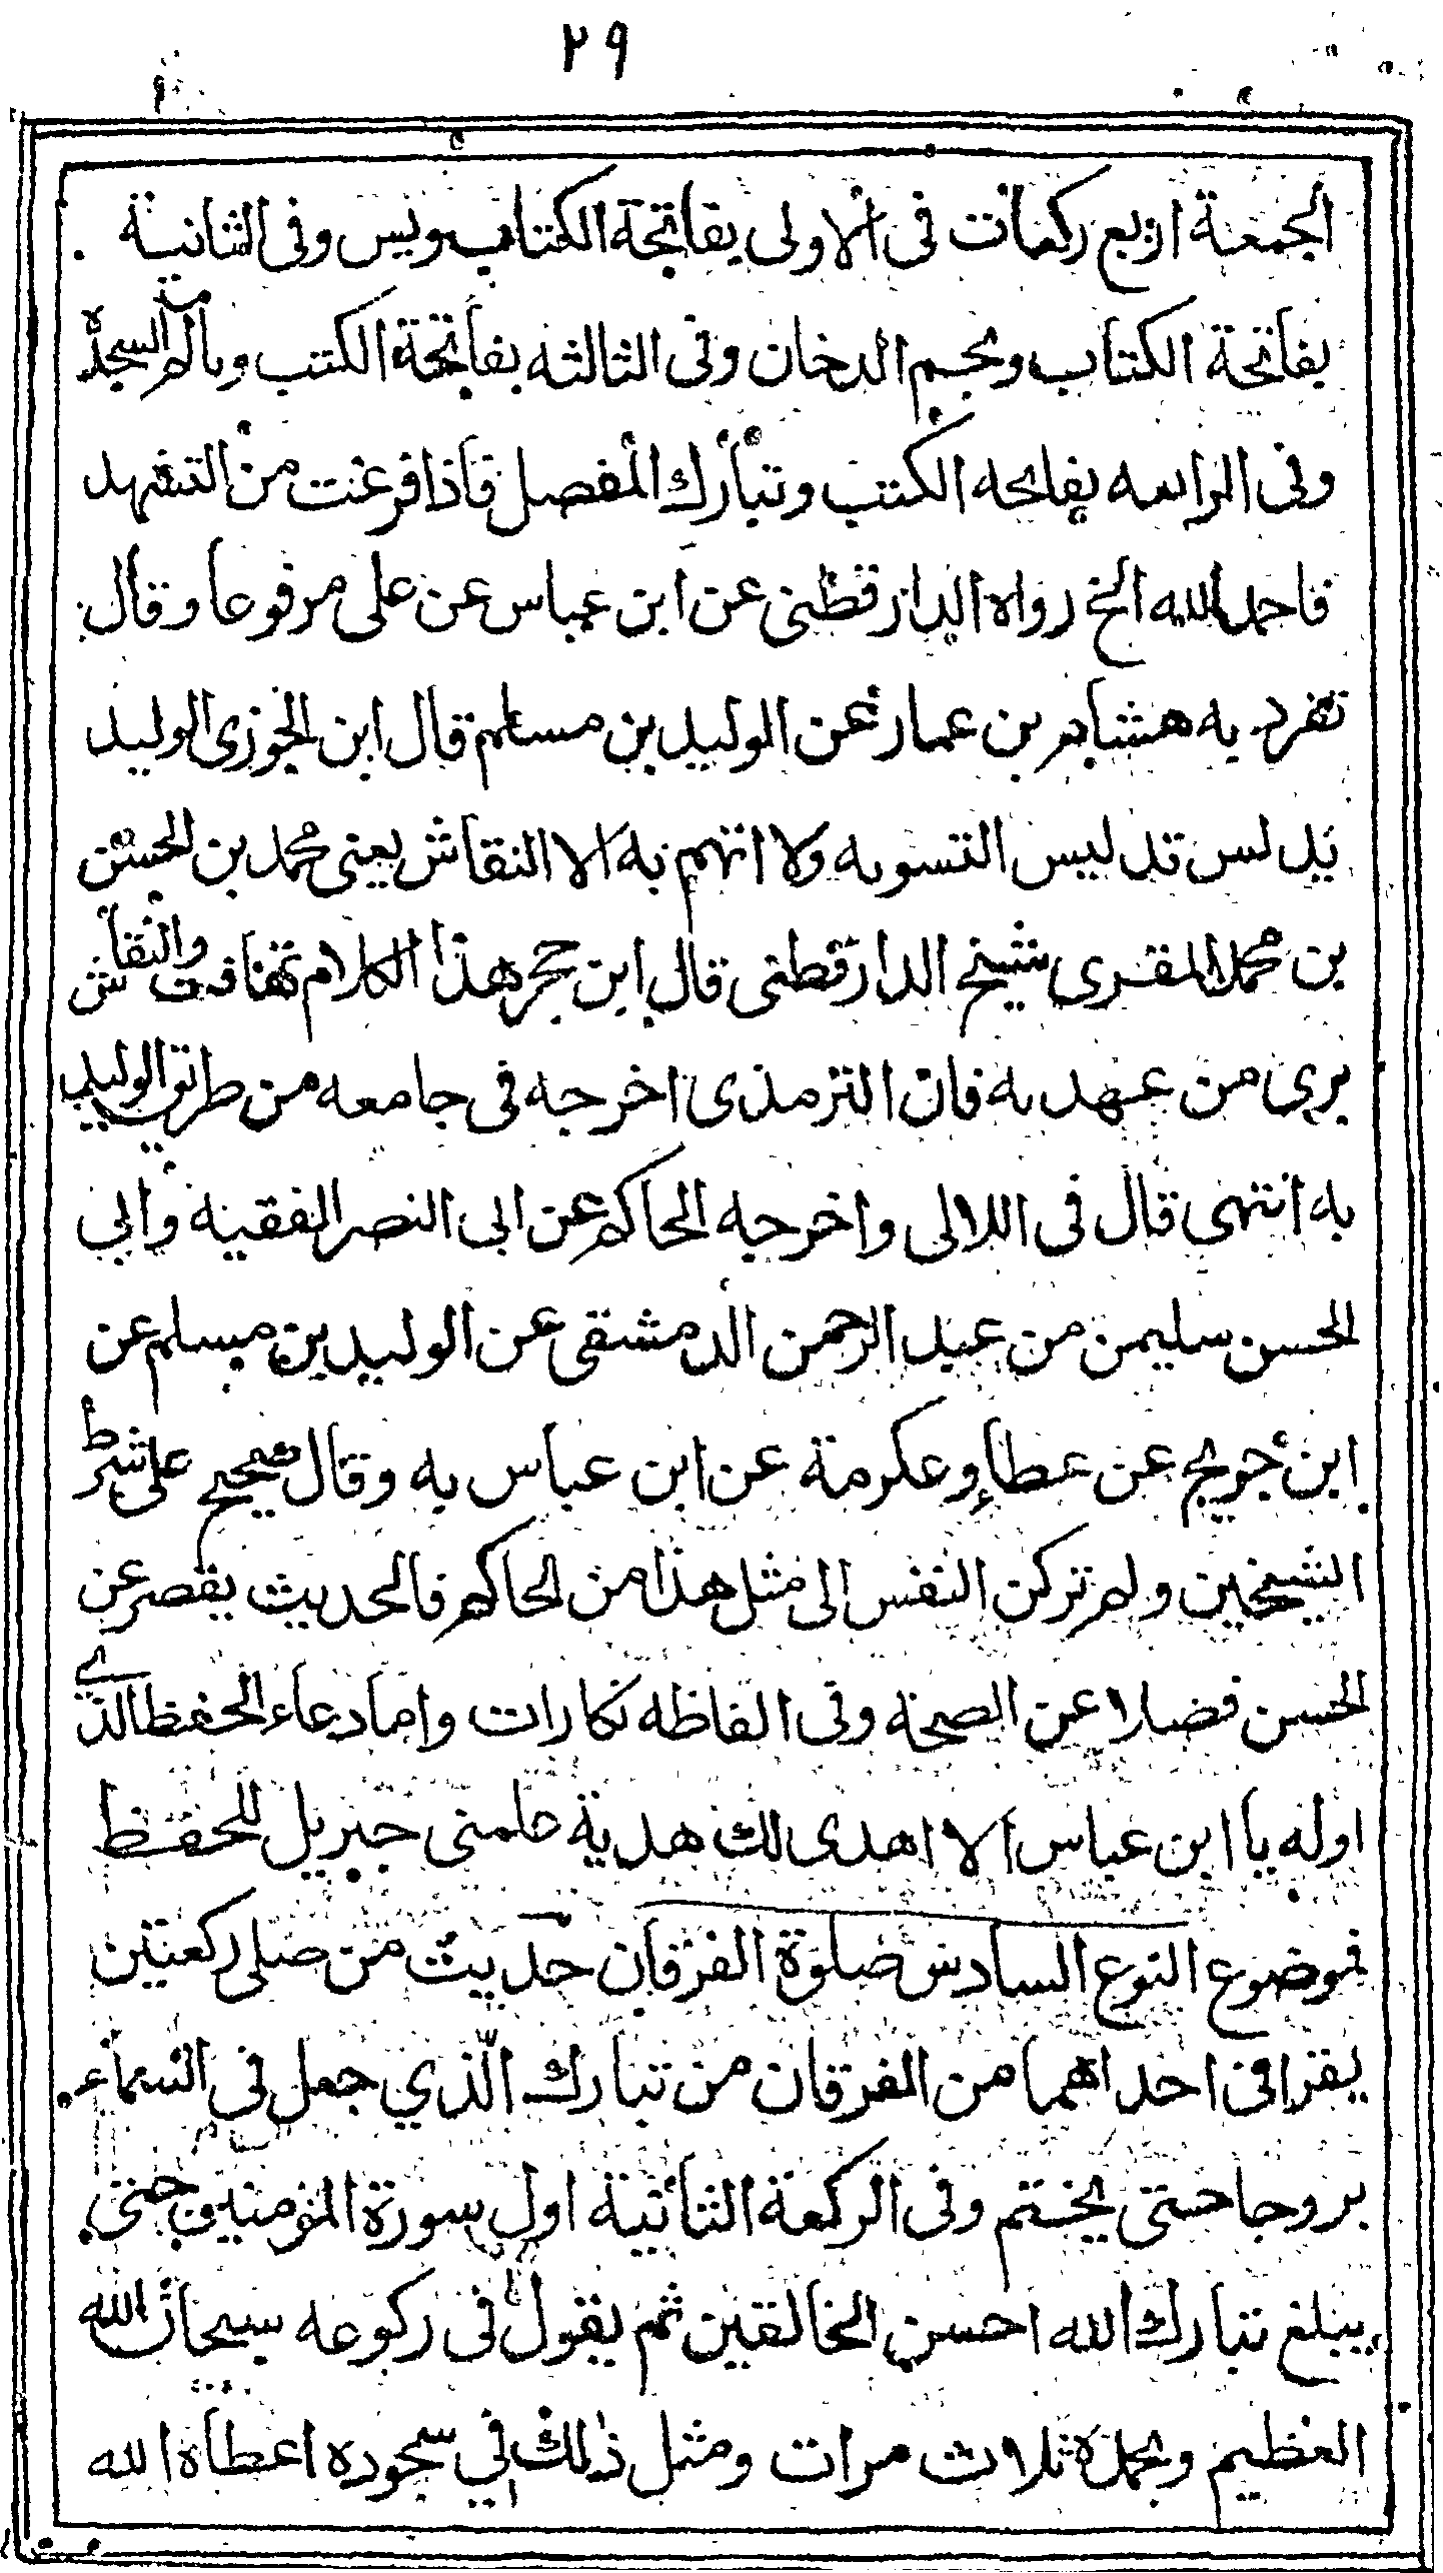 ٢٩
الجمعة اربع ركعات فى الاولى بفاتحة الكتاب ويس وفى الثانية
بفاتحة الكتاب وبحم الدخان وفى الثالثه بفاتحة الكتب وبالم السجده
وفى الرابعه بفاتحه الكتب وتبارك المفصل فاذا فرغت من التشهد
فاحمد الله الخ رواه الدارقطنى عن ابن عباس عن على مرفوعا وقال
تفرد به هشام بن عمار عن الوليد بن مسلم قال ابن الجوزى الوليد
يدلس تدليس التسويه ولا اتهم به الا النقاش يعنى محمد بن الحسن
بن محمد المقرى شيخ الدارقطنى قال ابن حجر هذا الكلام تهافت والنقاش
برى من عهدته فان الترمذى اخرجه فى جامعه من طريق الوليد
به انتهى قال فى اللالى واخرجه الحاكم عن ابى النصر الفقيه وابى
الحسن سليمن من عبد الرحمن الدمشقى عن الوليد بن مسلم عن
ابن جريج عن عطاء وعكرمة عن ابن عباس به وقال صحيح على شرط
الشيخين ولم تركن النفس الى مثل هذا من الحاكم فالحديث يقصر عن
الحسن فضلا عن الصحة وفى الفاظه نكارات واما دعاء الحفظ الذي
اوله يا ابن عباس الا اهدى لك هدية علمنى جبريل للحفظ
فموضوع النوع السادس صلوة الفرقان حديث من صلى ركعتين
يقرا فى احداهما من الفرقان من تبارك الّذي جعل فى السماء
بروجا حتى يختم وفى الركعة الثانية اول سورة المؤمنين حتى
يبلغ تبارك الله احسن الخالقين ثم يقول فى ركوعه سبحان الله
العظيم وبحمده ثلاث مرات ومثل ذلك في سجوده اعطاه الله